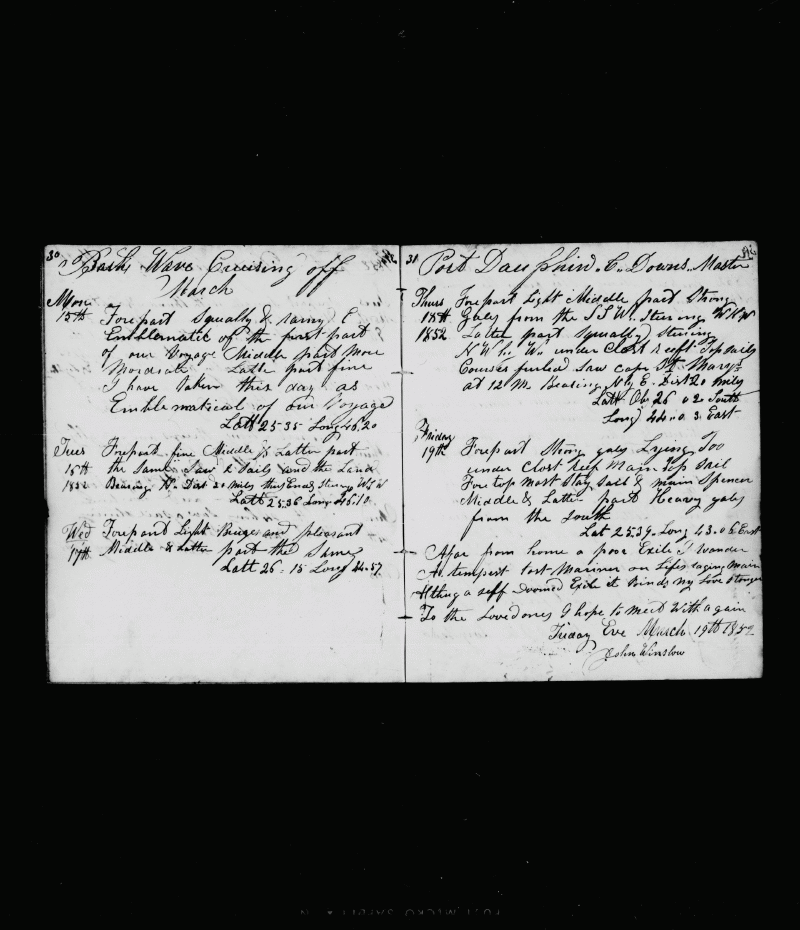 30
Bark Wave Cruising off
March
Mon
15th Forepart Squally & rainy E
Emblematic of the first part
of our Voyage Middle part More
Moderate Latter part fine
I have taken this day as
Emblematical of our Voyage
Latt 25 35 Long 46.20
Tues Forepart fine Middle & Latter part
16th the Same Saw 2 Sails and the Land
1852 Bearing N. Dist 20 Miles thus Ends Steering W.S.W
Latt 25 36 Long 46.10
Wed Forepart Light Breezes and pleasant
17th Middle & Latter part the Same
Latt 26 = 15 Long 44=57
31
Port Dauphin. C. Downs. Master
Thurs Forepart Light Middle part Strong
18th Gales from the S.S.W. Steering W.N.W
1852 Latter part Squally Steering
N W by W. under Close reeft Topsails
Courses furled Saw cape St Marys
at 12 M. Bearing N by E. Dist 20 Miles
Latt Ob 26 02 South
Long 44=0 3. East
Friday
19th Forepart Strong gales Lying Too
under Close reef Main Top Sail
Fore top Mast Stay Sail & main Spencer
Middle & Latter part Heavy gales
from the South
Lat 25.39. Long 43.06 East
Afar from home a poor Exile I wander
A tempest tost Mariner on Life's raging Main
Altho a self Doomed Exile it Binds my Love Stronger
To the Loved ones I hope to Meet With again
Friday Eve March 19th 1852
John Winslow